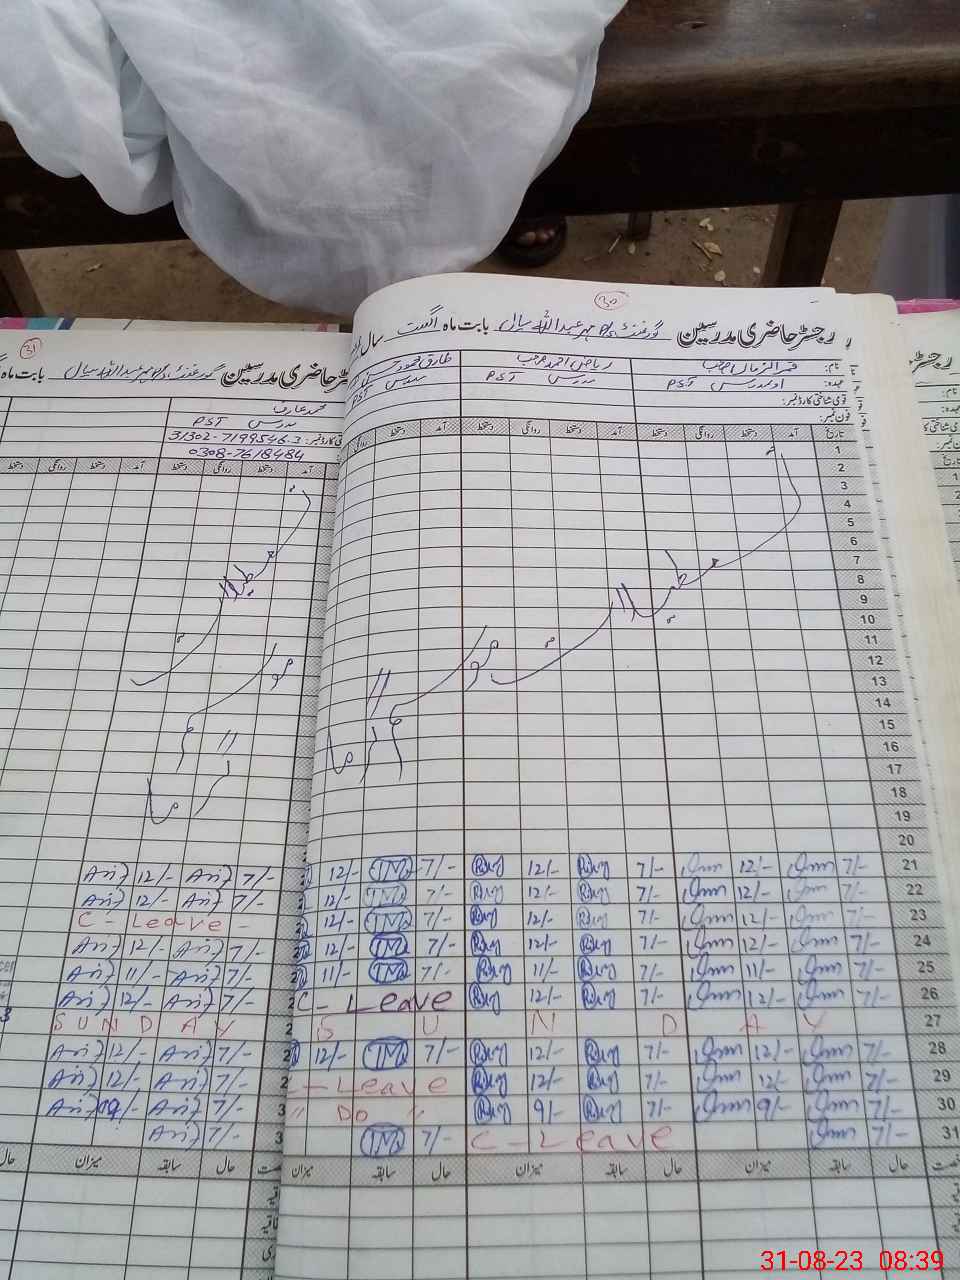 30
رجسٹر حاضری مدرسین گورنمنٹ P/S مہر عبداللہ سیال بابت ماہ اگست سال
نام: قمر الزمان صاحب ریاض احمد صاحب طارق محمود
عہدہ: اول مدرس PST مدرس PST مدرس PST
قومی شناختی کارڈ نمبر:
فون نمبر:
تاریخ آمد دستخط روانگی دستخط آمد دستخط روانگی دستخط آمد دستخط روانگی
1
2
3
4
5
6
7
8
9
10
11
12
13
14
15
16
17
18
19
20
تعطیلات موسم گرما
12/- 7/- 12/- 7/- 12/- 7/- 21
12/- 7/- 12/- 7/- 12/- 7/- 22
12/- 7/- 12/- 7/- 12/- 7/- 23
12/- 7/- 12/- 7/- 12/- 7/- 24
11/- 7/- 11/- 7/- 11/- 7/- 25
C - Leave 12/- 7/- 12/- 7/- 26
S U N D A Y 27
12/- 7/- 12/- 7/- 12/- 7/- 28
- Leave 12/- 7/- 12/- 7/- 29
" Do " 9/- 7/- 9/- 7/- 30
7/- C - Leave 7/- 31
حال سابقہ میزان حال سابقہ میزان حال سابقہ میزان
31
رجسٹر حاضری مدرسین گورنمنٹ P/S مہر عبداللہ سیال بابت ماہ
محمد عارف
مدرس PST
31302-7199546-3
0308-7618484
آمد دستخط روانگی دستخط آمد دستخط
تعطیلات موسم گرما
12/- 7/-
12/- 7/-
C - Leave -
12/- 7/-
11/- 7/-
12/- 7/-
S U N D A Y
12/- 7/-
12/- 7/-
9/- 7/-
7/-
حال سابقہ میزان حال
رجسٹر
نام:
عہدہ:
تاریخ
31-08-23 08:39